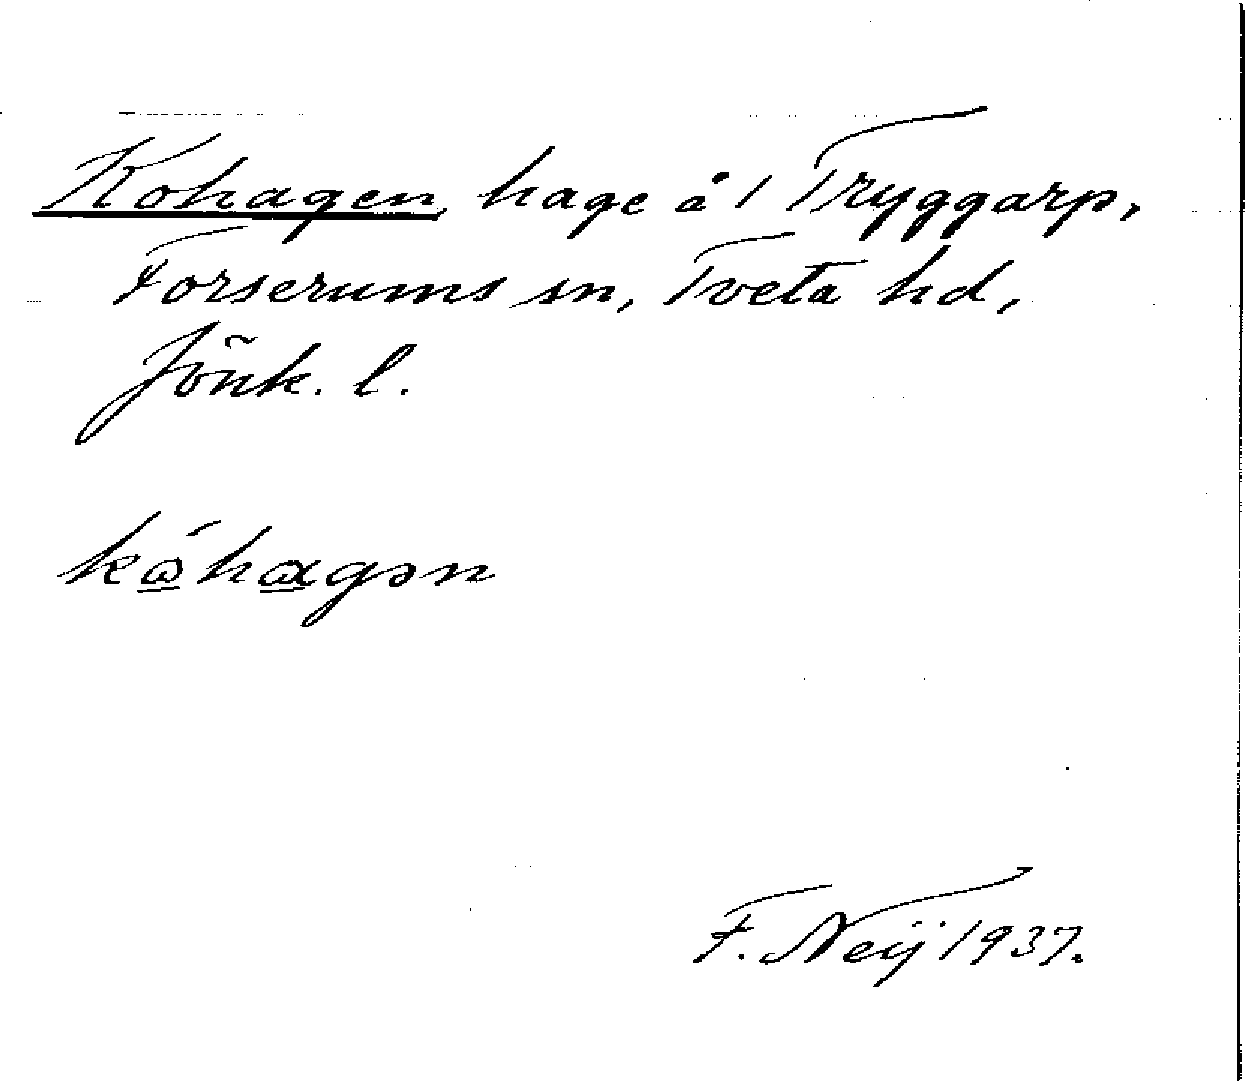 Kohagen, hage å 1 Tryggarp,
Forserums sn, Tveta hd,
Jönk. l.
kώ̲hα̲gən
F. Neij 1937.